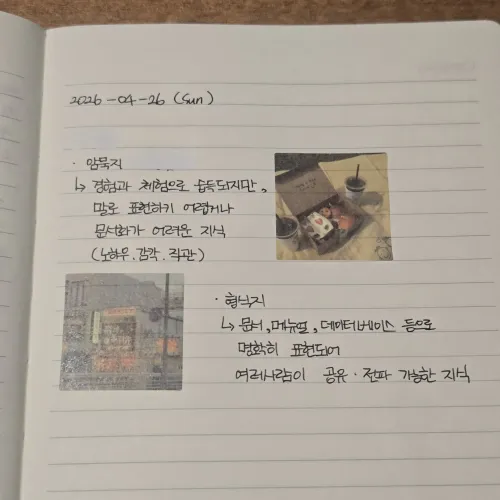 2026-04-26 (Sun)
· 암묵지
↳ 경험과 체험으로 습득되지만,
말로 표현하기 어렵거나
문서화가 어려운 지식
(노하우, 감각, 직관)
· 형식지
↳ 문서, 메뉴얼, 데이터베이스 등으로
명확히 표현되어
여러사람이 공유·전파 가능한 지식